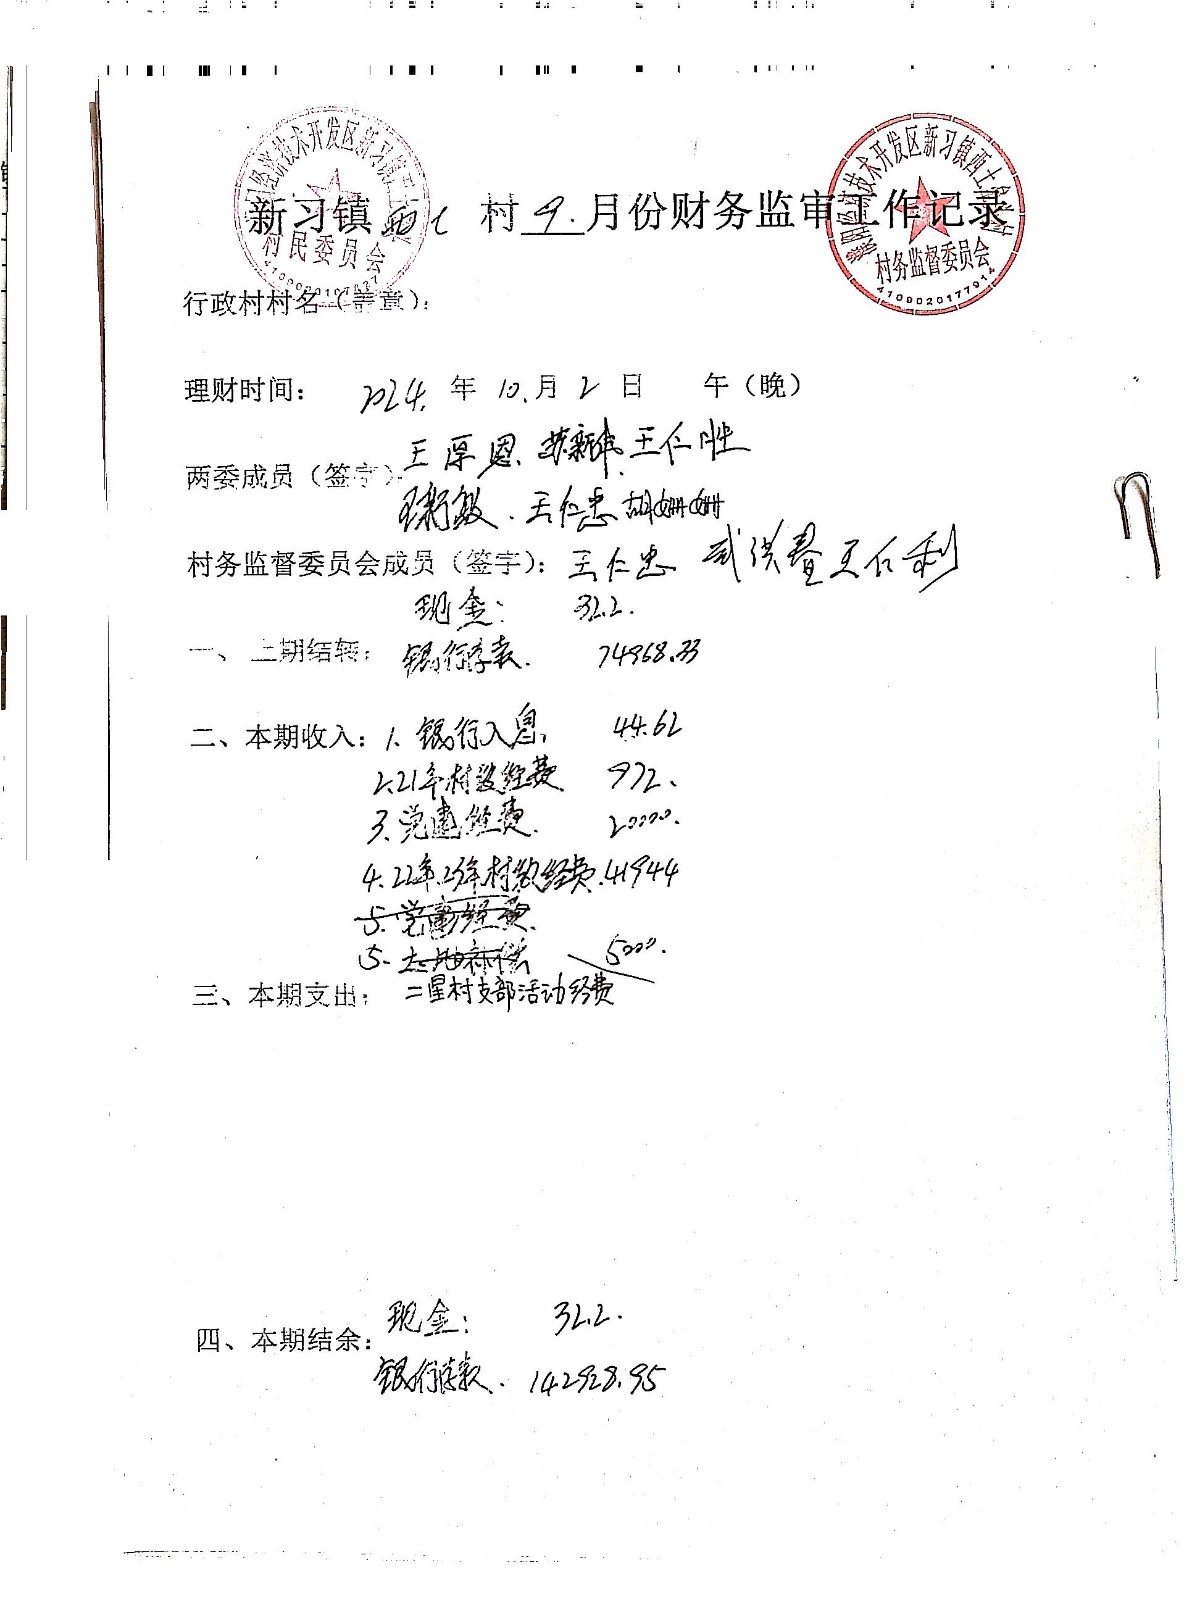 新习镇 西七 村 9. 月份财务监审工作记录
村民委员会
村务监督委员会
4109020177914
行政村村名（盖章）：
理财时间： 2024. 年 10. 月 2 日 午（晚）
王厚恩 苏新伟 王仁胜
两委成员（签字）
王仁忠 胡姗姗
村务监督委员会成员（签字）： 王仁忠 王仁利
现金： 32.2.
一、上期结转： 银行存款. 74968.33
二、本期收入： 1. 银行入息. 44.62
2. 21年村级经费 972.
3. 党建经费. 20000.
4. 22年.23年村级经费. 41944
5. 党建经费.
5. 土地补偿 5000.
三、本期支出： 二星村支部活动经费
现金： 32.2.
四、本期结余：
银行存款. 142928.95